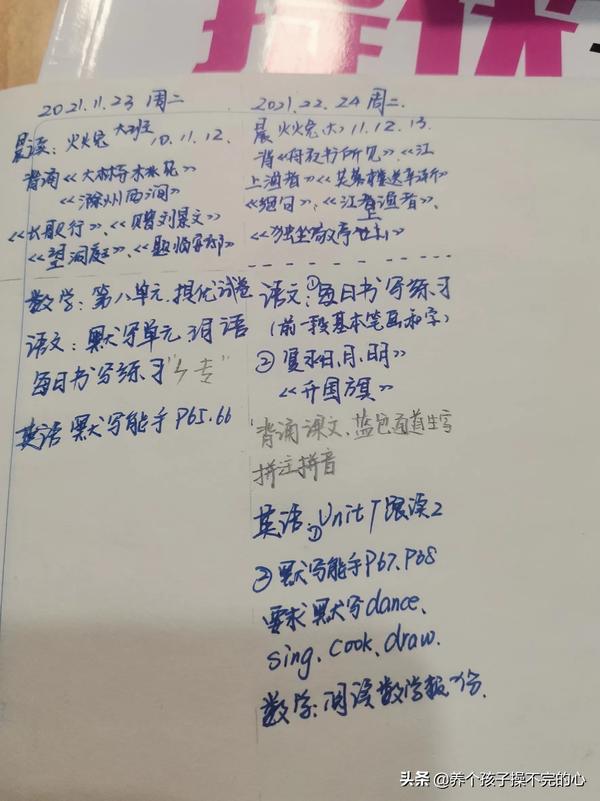 2021.11.23 周二
晨读:火火兔大班10.11.12.
背诵《大林寺桃花》
《滁州西涧》
《长歌行》、《赠刘景文》
《望洞庭》、《题临安邸》
数学:第八单元.提优试卷
语文:默写单元词语
每日书写练习
英语 默写能手 P65.66
2021.22.24 周二.
晨 火火兔(大)11.12.13.
背《舟夜书所见》、《江
上渔者》《芙蓉楼送辛渐》
《绝句》、《江上渔者》、
《独坐敬亭山》
语文:①每日书写练习
(前一段基本笔画和字)
②复习《日月明》
《升国旗》
背诵课文、蓝色通道生字
拼注拼音
英语:①Unit 7 跟读2
②默写能手P67.P68
要求默写dance、
sing、cook、draw.
数学:阅读数学报1份.
头条 @养个孩子操不完的心